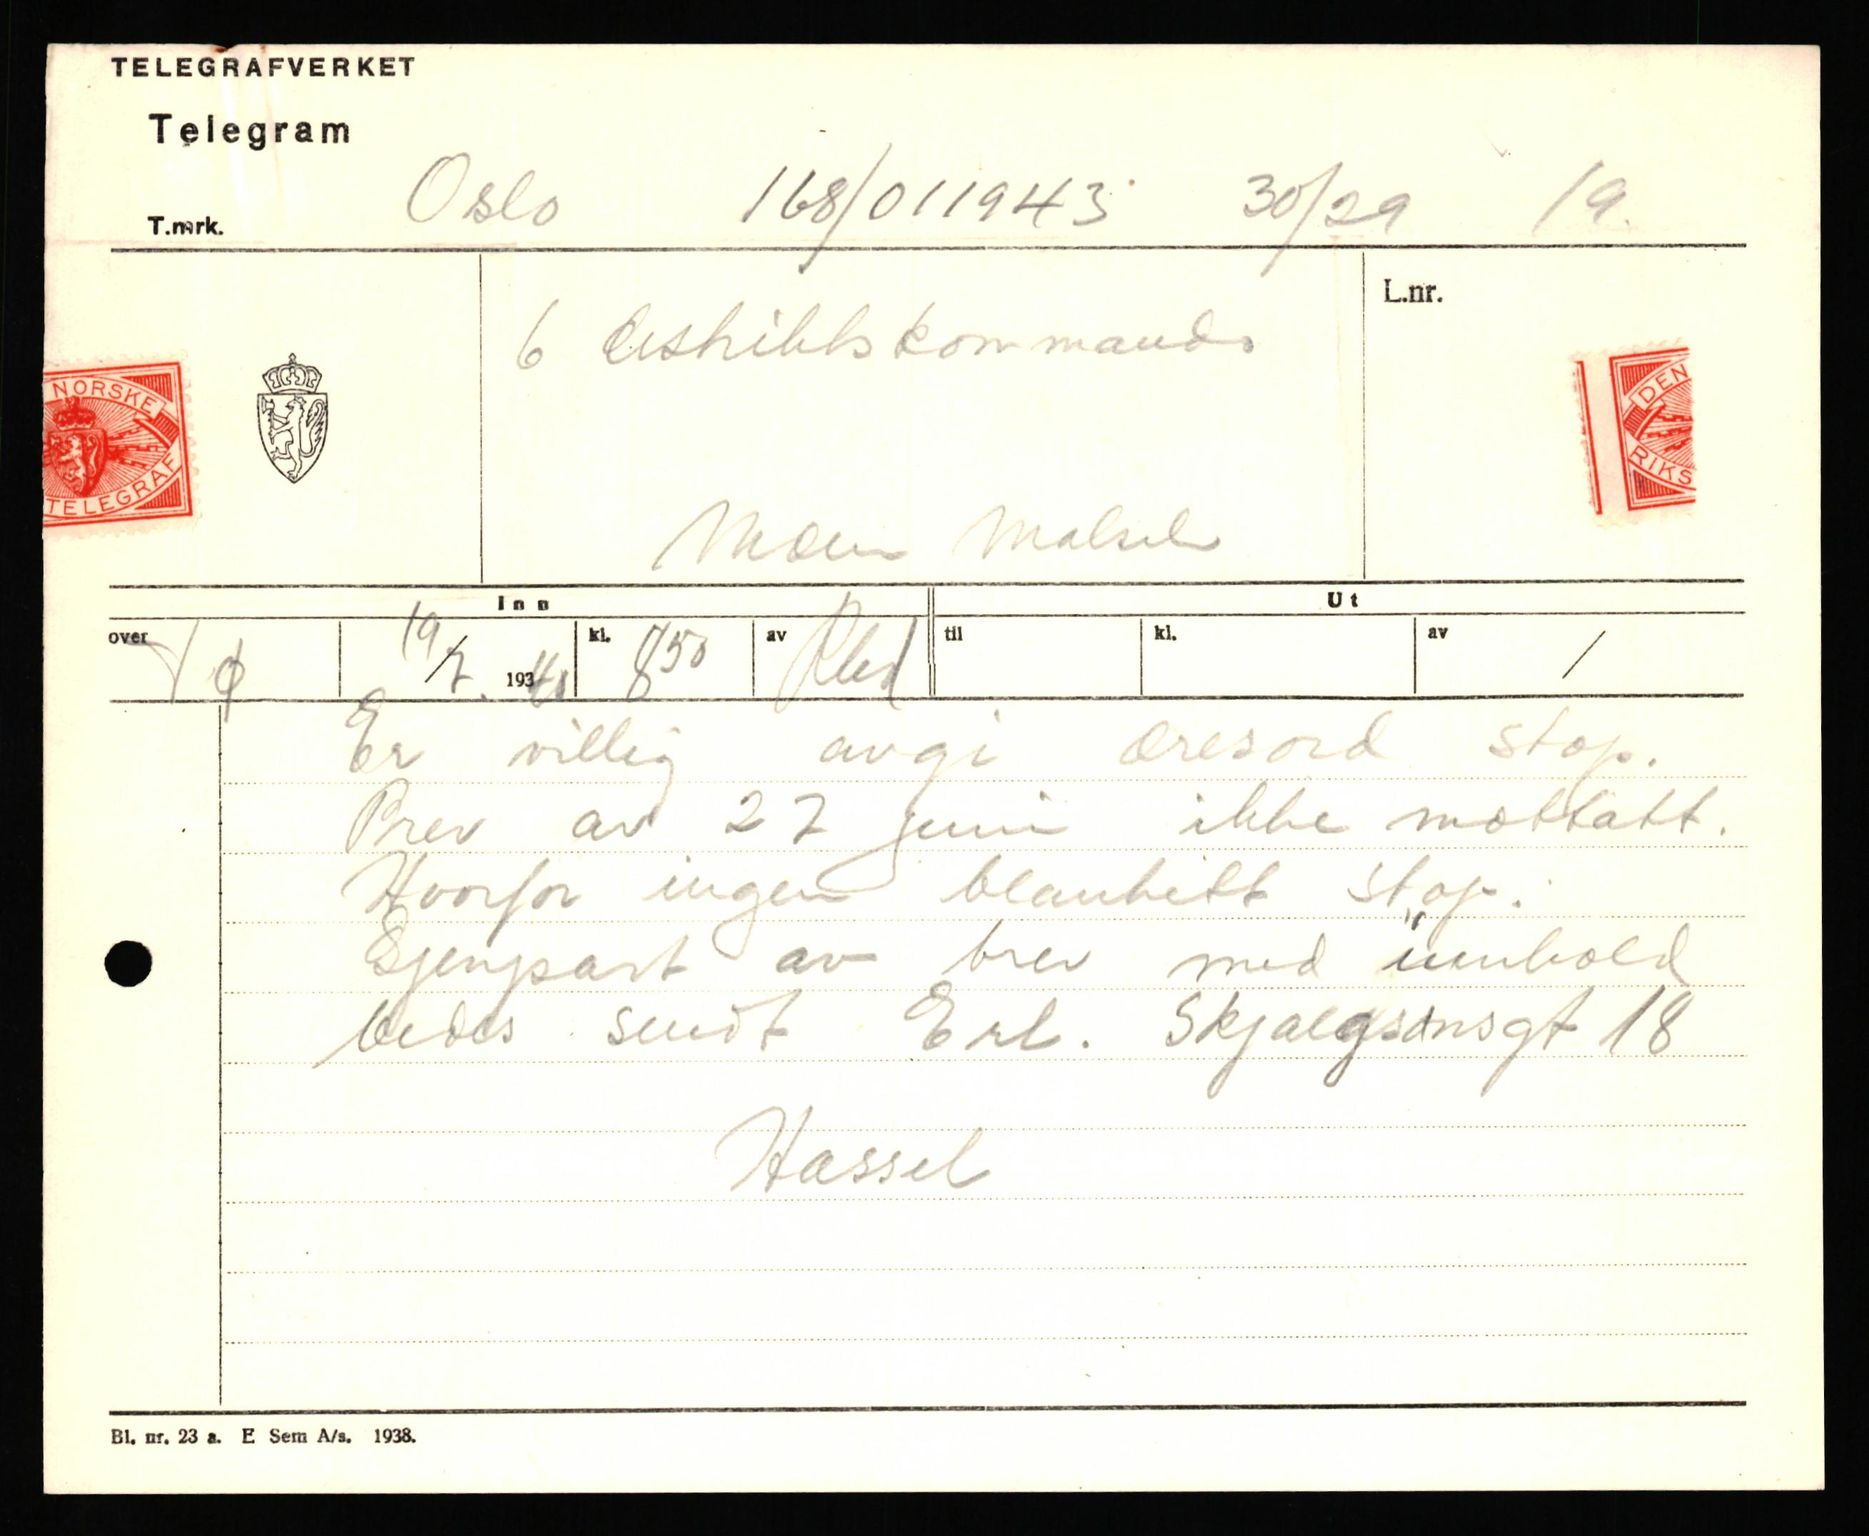 TELEGRAFVERKET
Telegram
T.mrk.
Oslo 168/011943 30/29 19.
6 distriktskommando
L.nr.
NORSKE
TELEGRAF
DEN
RIKS
Moen Målselv
Inn Ut
over 19/7. 1940 kl. 8 50 av til kl. av /
Er villig avgi æresord stop.
Brev av 27 juni ikke mottatt.
Hvorfor ingen blankett stop.
Gjenpart av brev med innhold
bedes sendt Erl. Skjalgsønsgt 18
Hassel
Bl. nr. 23 a. E Sem A/s. 1938.